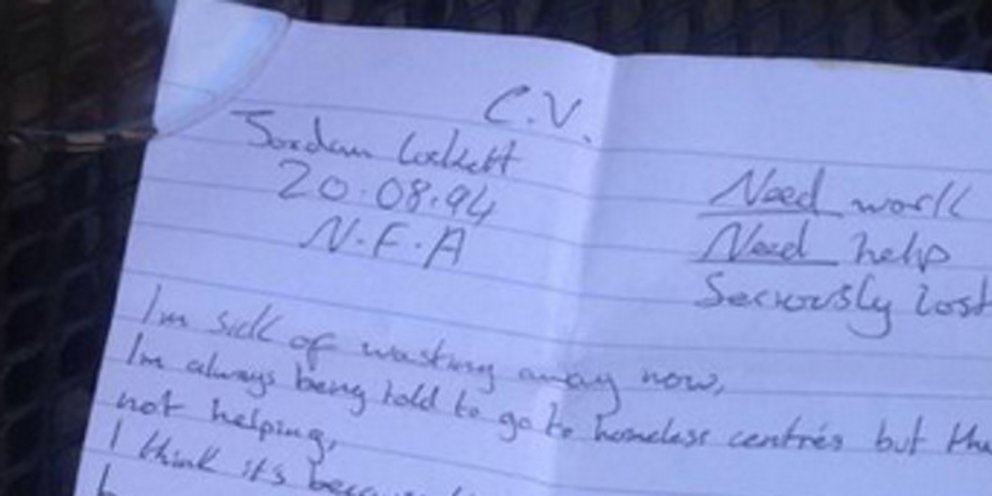 C.V.
Jordan Lockett
20.08.94
N.F.A
Need work
Need help
Seriously lost
Im sick of wasting away now,
Im always being told to go to homeless centrés but the
not helping,
I think its